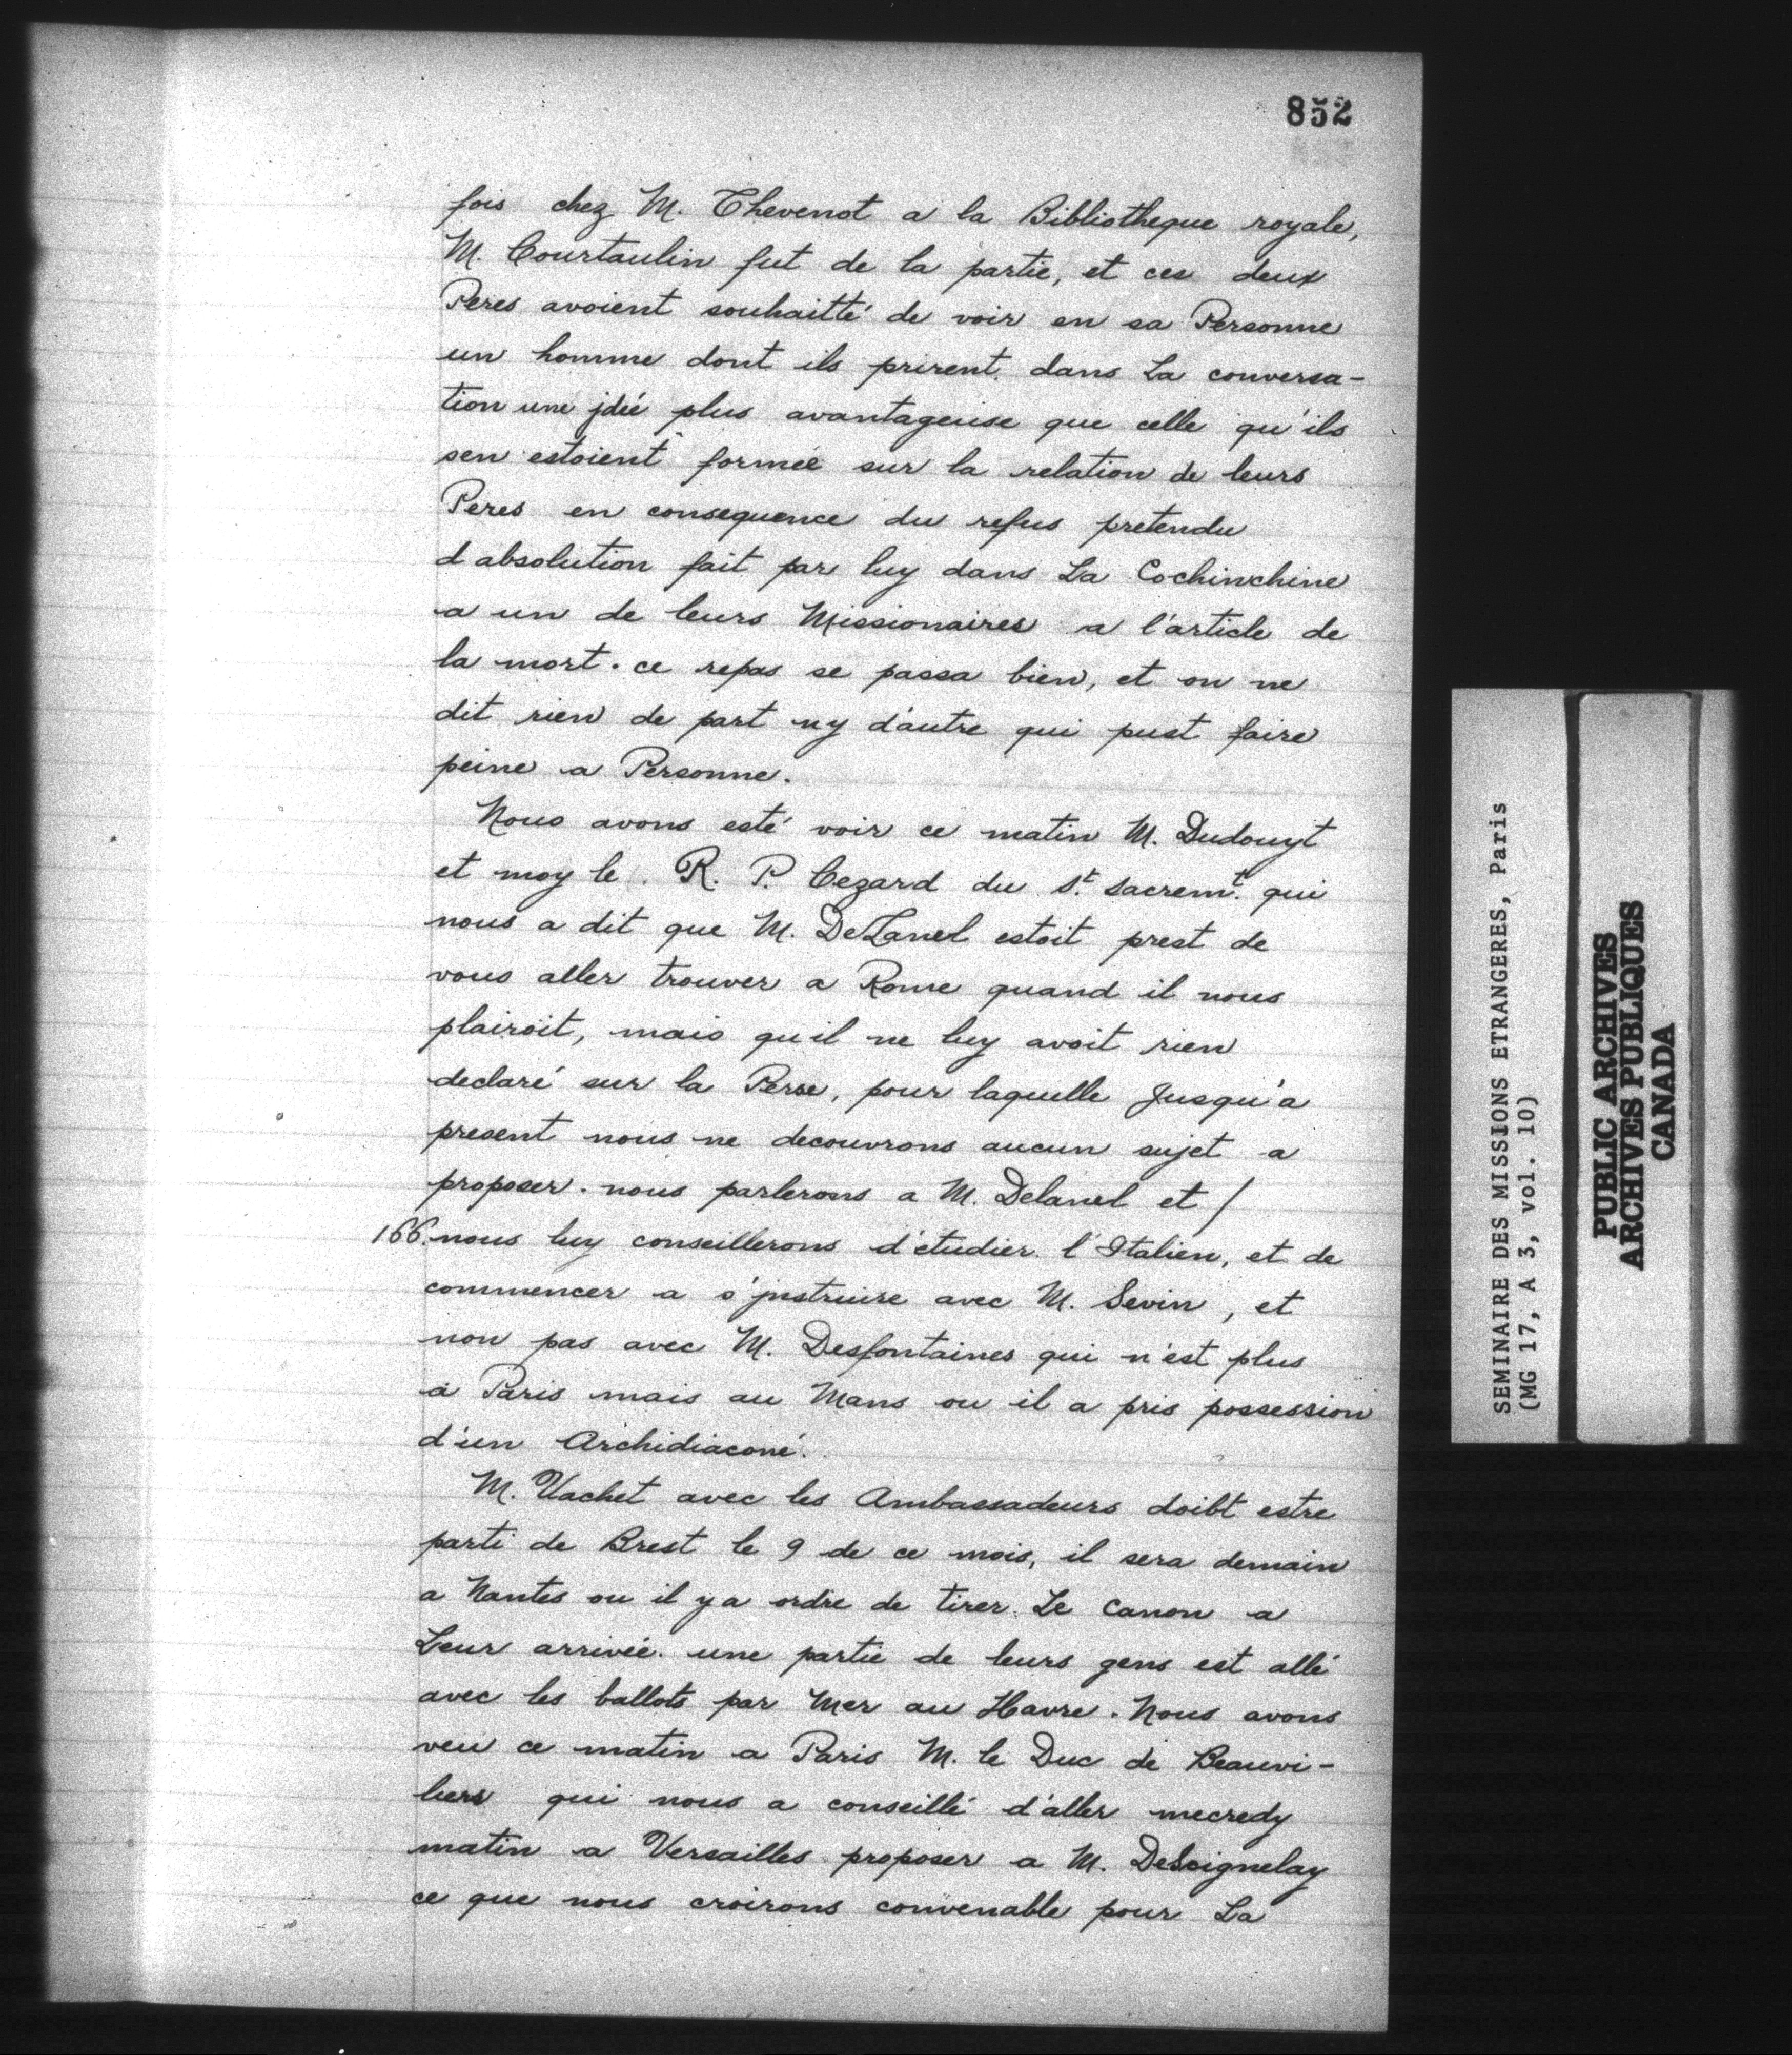 852
fois chez M. Thevenot a la Bibliotheque royale,
M. Courtaulin fut de la partie, et ces deux
Peres avoient souhaitté de voir en sa Personne
un homme dont ils prirent dans La conversa-
tion une jdée plus avantageuse que celle qu'ils
sen estoient formée sur la relation de leurs
Peres en consequence du refus pretendu
d absolution fait par luy dans La Cochinchine
a un de leurs Missionaires a l'article de
la mort. ce repas se passa bien, et on ne
dit rien de part ny d'autre qui pust faire
peine a Personne.
Nous avons esté voir ce matin M. Dudouyt
et moy le R. P. Cezard du St. Sacremt. qui
nous a dit que M. DeLanel estoit prest de
vous aller trouver a Rome quand il nous
plairoit, mais qu il ne luy avoit rien
declaré sur la Perse, pour laquelle Jusqu'a
present nous ne decouvrons aucun sujet a
proposer. nous parlerons a M. Delanel et /
166. nous luy conseillerons d'étudier l'Italien, et de
commencer a s'jnstruire avec M. Sevin, et
non pas avec M. Desfontaines qui n'est plus
a Paris mais au Mans ou il a pris possession
d'un Archidiaconé.
M. Vachet avec les Ambassadeurs doibt estre
parti de Brest le 9 de ce mois, il sera demain
a Nantes ou il y a ordre de tirer Le Canon a
Leur arrivée. une partie de leurs gens est allé
avec les ballots par Mer au Havre. Nous avons
veu ce matin a Paris M. le Duc de Beauvi-
liers qui nous a conseillé d'aller mecredy
matin a Versailles proposer a M. DeSeignelay
ce que nous croirons convenable pour La
SEMINAIRE DES MISSIONS ETRANGERES, Paris
(MG 17, A 3, vol. 10)
PUBLIC ARCHIVES
ARCHIVES PUBLIQUES
CANADA